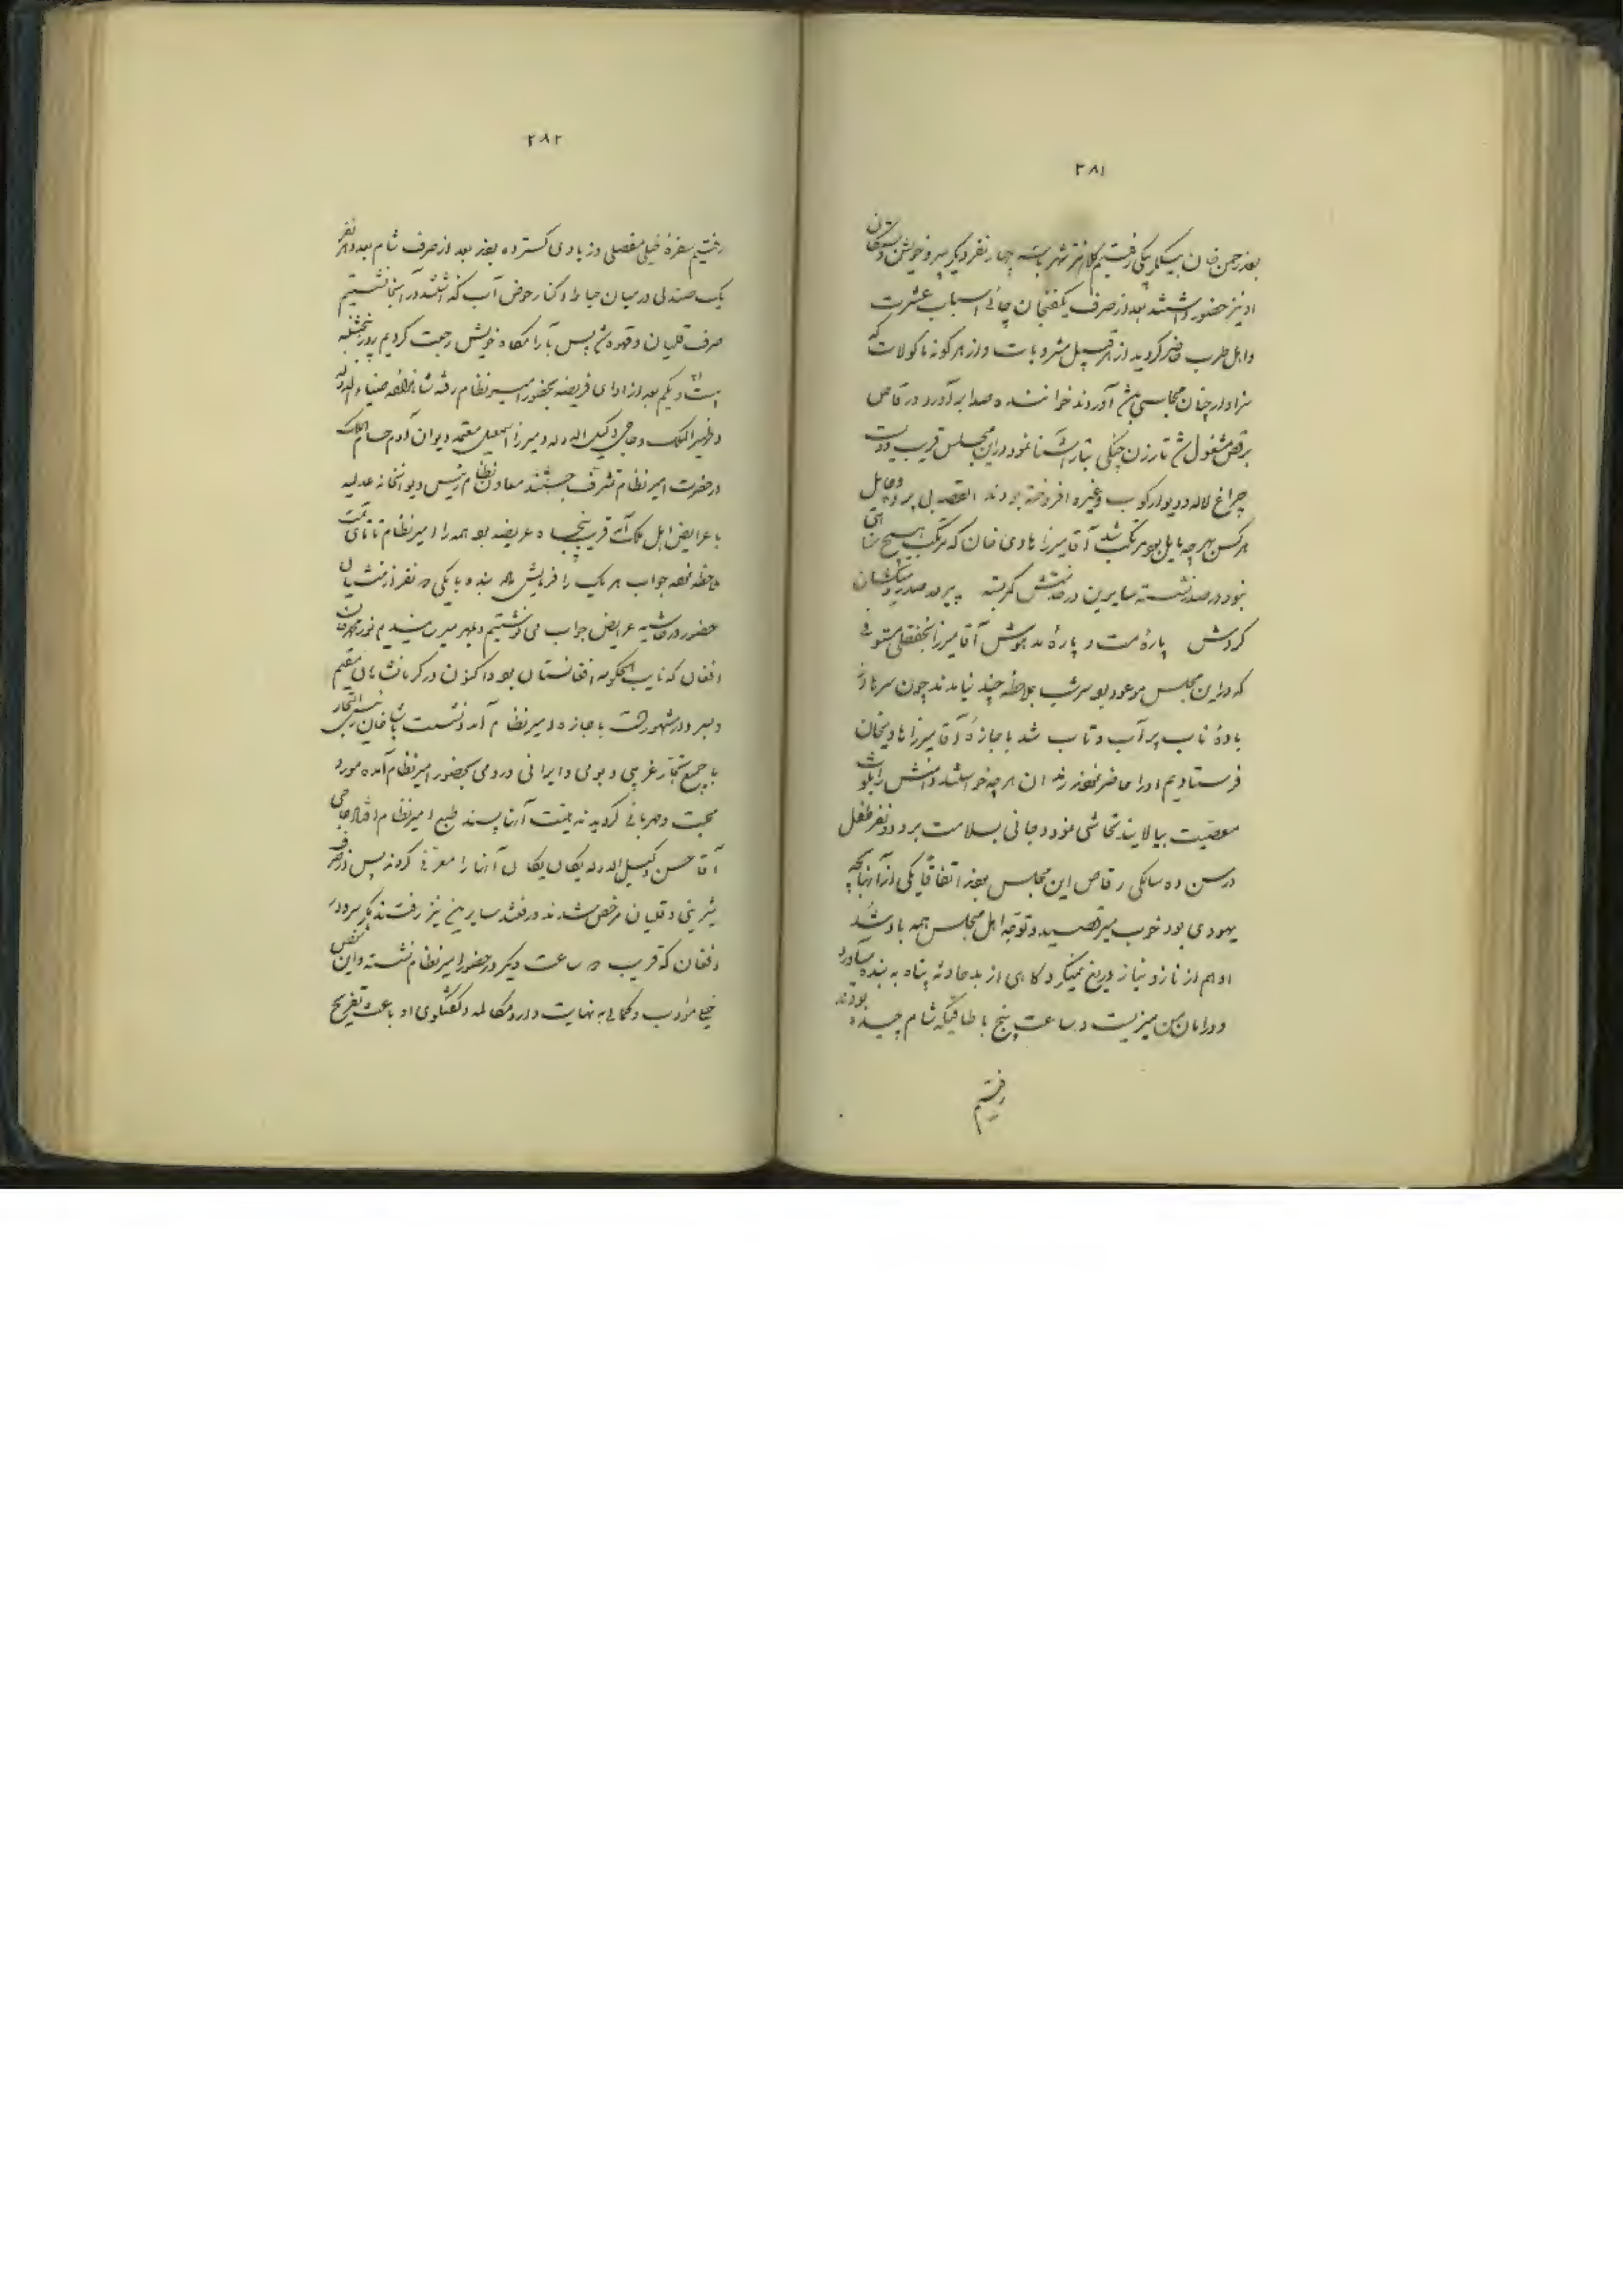 ۲۸۱
رحمن خان بیگلربیگی رفتیم کلانتر شهر چهار نفر دیگر پسر و خویش و بستگان
او نیز حضور داشتند بعد از صرف یکفنجان چائی اسباب عشرت
و اهل طرب حاضر گردید از هر قبیل مشروبات و از هر گونه ماکولات که
سزاوار چنان مجلسی پیش آوردند خواننده صدا برآورد رقاص
برقص مشغول شد تارزن چنگی بتار آشنا نمود در این مجلس قریب دویست
چراغ لاله و دیوارکوب و غیره افروخته بودند القصه بی پرده و حایل
هر کس بهر چه مایل بود مرتکب شد آقا میرزا هادی خان که مرتکب هیچ مناهی
نبود در صدر نشسته سایرین در خدمتش کمر بسته پیر در صدر و میکشان
گردش پارهٔ مست و پارهٔ مدهوش آقا میرزا نجفقلی مستوفی
که در این مجلس موعود بود سرشب بملاحظه چند نیامدند چون سرها از
بادهٔ ناب پر آب و تاب شد باجازهٔ آقا میرزا هادیخان
فرستادیم او را حاضر نمودند رندان هر چه خواستند دامنش را بلوث
معصیت بیالایند تحاشی نمود و جانی بسلامت برد دو نفر طفل
در سن ده سالگی رقاص این مجلس بودند اتفاقاً یکی از آنها بچه
یهودی بود خوب میرقصید و توجه اهل مجلس همه باو شد
او هم از ناز و نیاز دریغ نمیکرد گاهی از بد حادثه پناه به بنده میآورد
و در امان من میزیست در ساعت پنج باطاقیکه شام چیده بودند
رفتیم
۲۸۲
رفتیم سفرهٔ خیلی مفصلی و زیادی گسترده بودند بعد از صرف شام بعدد هر نفر
یک صندلی در میان حیاط و کنار حوض آب گذاشتند در آنجا نشستیم
صرف قلیان و قهوه شد پس بآرامگاه خویش رجعت کردیم روز پنجشنبه
بیست و یکم بعد از ادای فریضه بحضور امیر نظام رفته ضیاء الدوله
و ظهیر الملک و حاجی وکیل الدوله و میرزا اسمعیل معتمد دیوان آدم حسام الملک
در حضرت امیر نظام تشرف جستند معاون نظام رئیس دیوانخانه عدلیه
با عرایض اهل مملکت آمد قریب پنجاه عریضه بود همه را امیر نظام
ملاحظه نموده جواب هر یک را فرمایش بنده با یکی دو نفر از منشیان
حضور در حاشیه عرایض جواب می نوشتیم و بمهر میرساندیم نورمحمدخان
افغان که نایب الحکومه افغانستان بود و اکنون در کرمانشاهان مقیم
باجازه امیر نظام آمد و نشست رئیس التجار
با جمیع تجار غریبی و بومی و ایرانی و رومی بحضور امیر نظام آمده مورد
محبت و مهربانی گردیدند هیئت آنها پسند طبع امیر نظام افتاد حاجی
آقا حسن وکیل الدوله یکان یکان آنها را معرفی کردند پس از صرف
شیرینی و قلیان مرخص شدند و رفتند سایرین نیز رفتند مگر سردار
افغان که قریب دو ساعت دیگر در حضور امیر نظام نشسته و این شخص
خیلی مؤدب و کمالی بی نهایت دارد مکالمه و گفتگوی او باعث تفریح